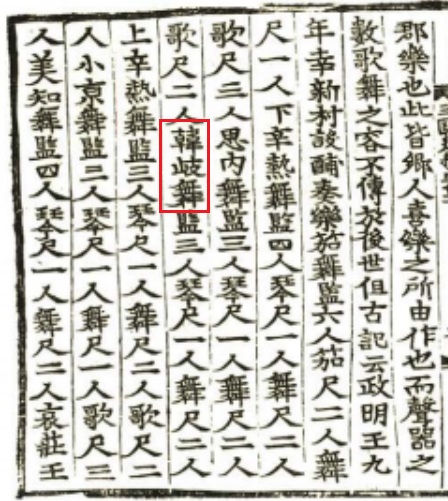 郡樂也此皆鄉人喜樂之所由作也而聲器之
數歌舞之容不傳於後世但古記云政明王九
年幸新村設酺奏樂笳舞監六人笳尺二人舞
尺一人下辛熱舞監四人琴尺一人舞尺二人
歌尺三人思內舞監三人琴尺一人舞尺二人
歌尺二人韓岐舞監三人琴尺一人舞尺二人
上辛熱舞監三人琴尺一人舞尺二人歌尺二
人小京舞監三人琴尺一人舞尺一人歌尺三
人美知舞監四人琴尺一人舞尺二人哀莊王